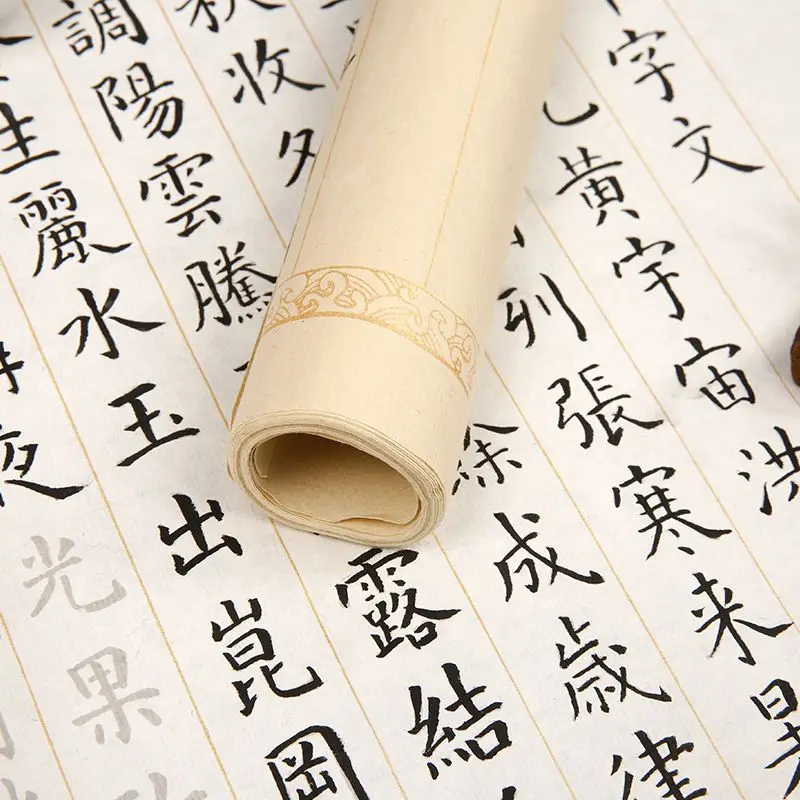 字文
黃宇宙洪
列張寒來
收
成歲律
調陽雲騰
露結
生麗水玉出崑岡
夜光果